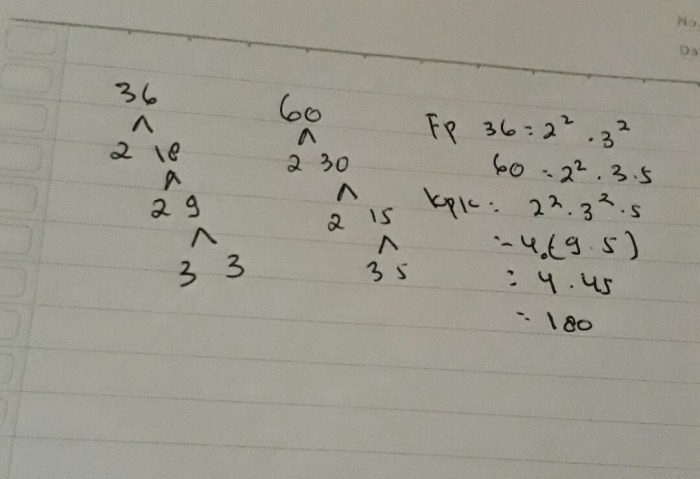 No.
Da
36
^
2 18
^
2 9
^
3 3
60
^
2 30
^
2 15
^
3 5
Fp 36 = 2² . 3²
60 = 2² . 3 . 5
kpk : 2² . 3² . 5
= 4 . (9 . 5)
= 4 . 45
= 180